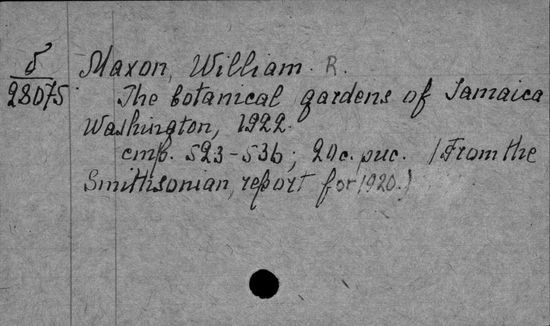 б
28075
Maxon, William R.
The botanical gardens of Jamaica
Washington, 1922.
стр. 523-536; 20с. рис. (From the
Smithsonian, report for 1920.)